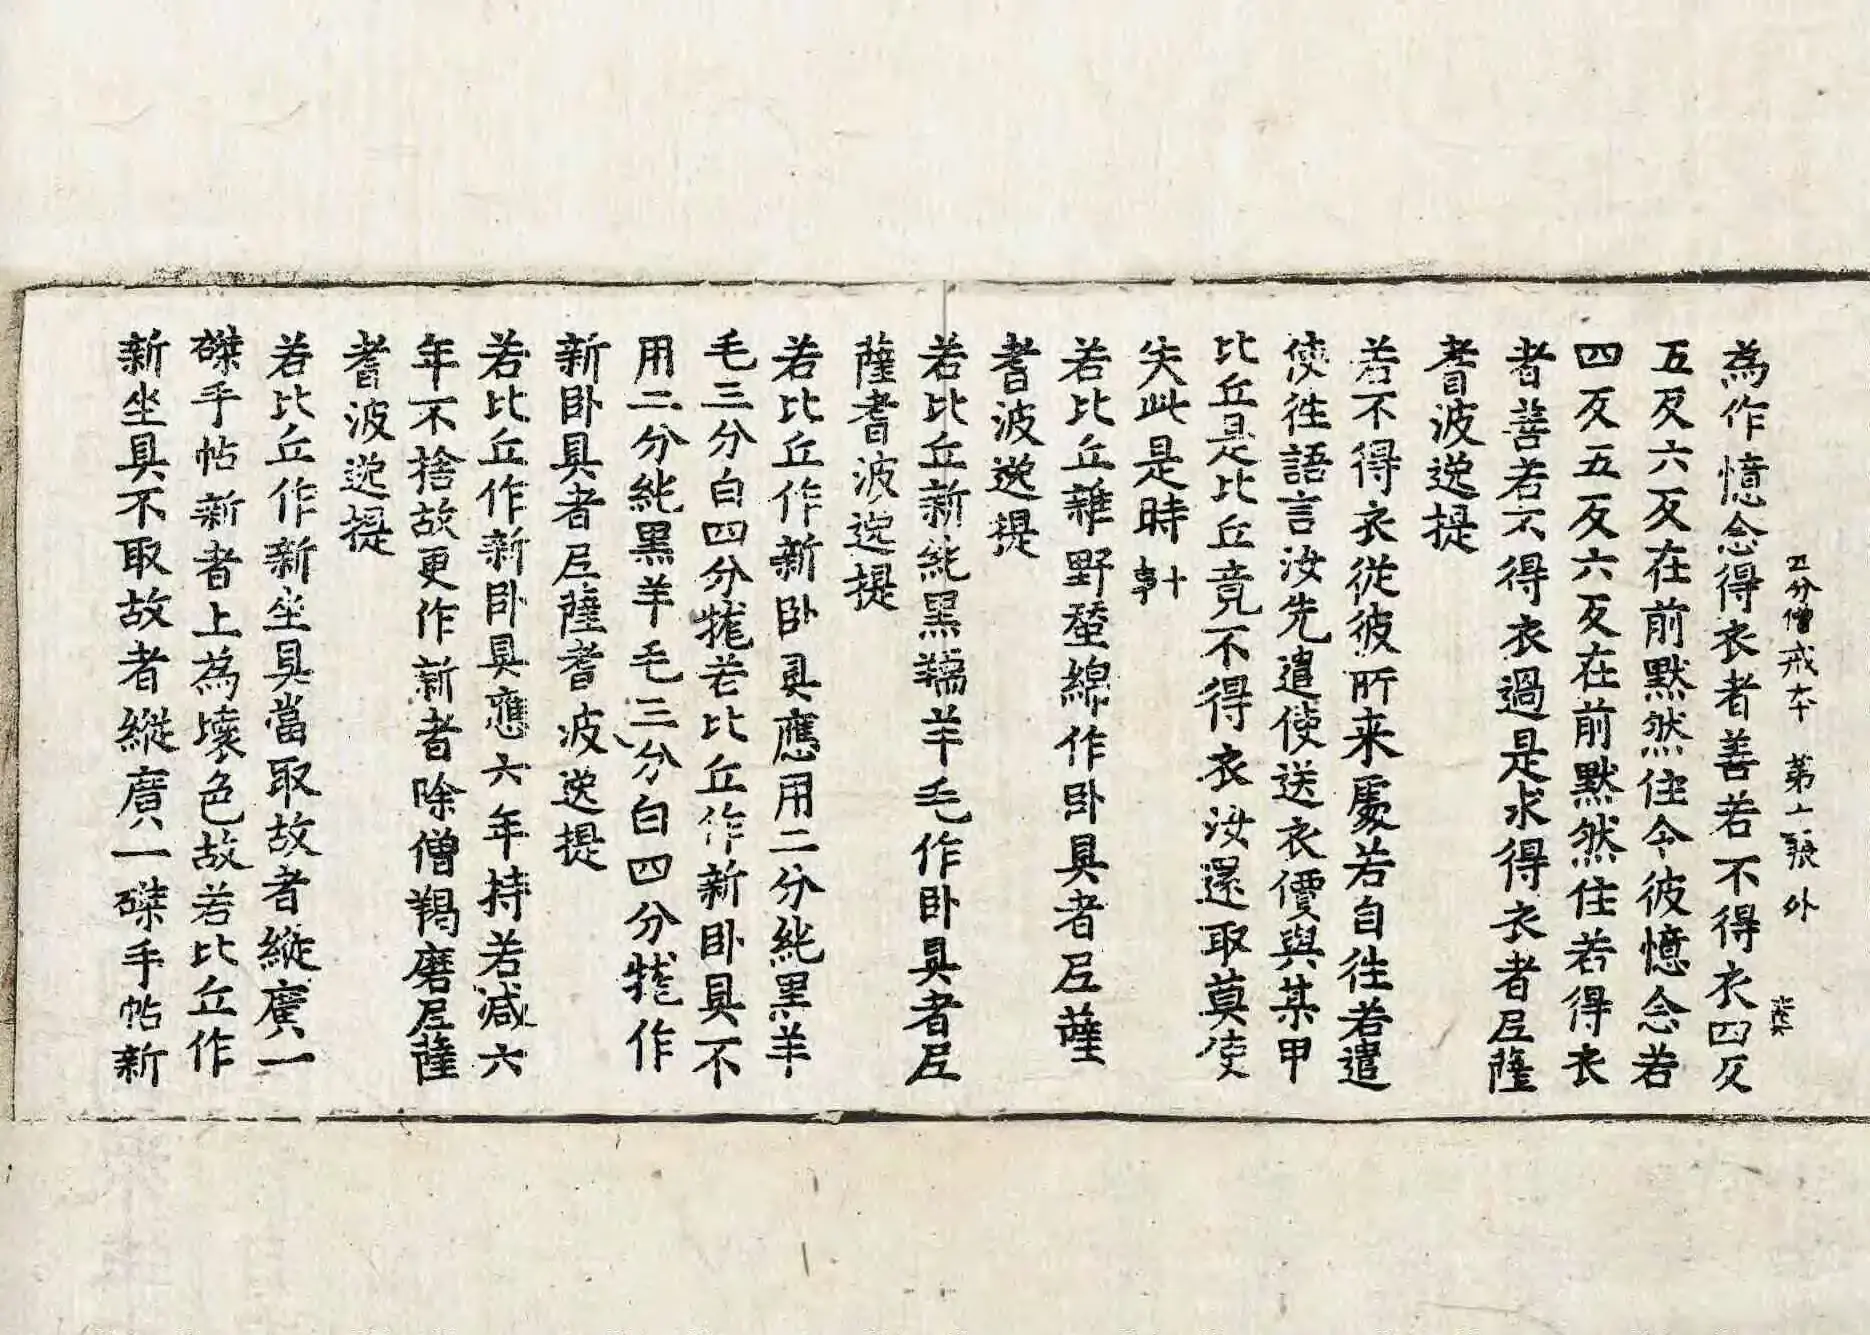 五分僧戒本　第十張　外
為作憶念得衣者善若不得衣四反
五反六反在前默然住令彼憶念若
四反五反六反在前默然住若得衣
者善若不得衣過是求得衣者尼薩
耆波逸提
若不得衣從彼所来處若自往若遣
使往語言汝先遣使送衣價與某甲
比丘是比丘竟不得衣汝還取莫使
失此是時 十事
若比丘雜野蚕綿作卧具者尼薩
耆波逸提
若比丘新純黑羺羊毛作卧具者尼
薩耆波逸提
若比丘作新卧具應用二分純黑羊
毛三分白四分牻若比丘作新卧具不
用二分純黑羊毛三分白四分牻作
新卧具者尼薩耆波逸提
若比丘作新卧具應六年持若減六
年不捨故更作新者除僧羯磨尼薩
耆波逸提
若比丘作新坐具當取故者縱廣一
磔手帖新者上為壞色故若比丘作
新坐具不取故者縱廣一磔手帖新